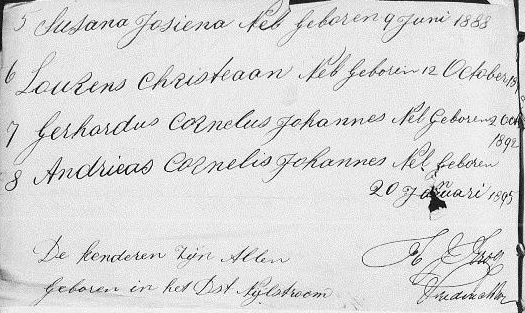 5 Susana Josiena Nel Geboren 9 Juni 1888
6 Lourens Christeaan Nel Geboren 12 October
7 Gerhardus Cornelus Johannes Nel Geboren 2 Oct
1892
8 Andrieas Cornelis Johannes Nel Geboren
20 Januari 1895
De kenderen Zijn Allen
Geboren in het Dst Nylstroom